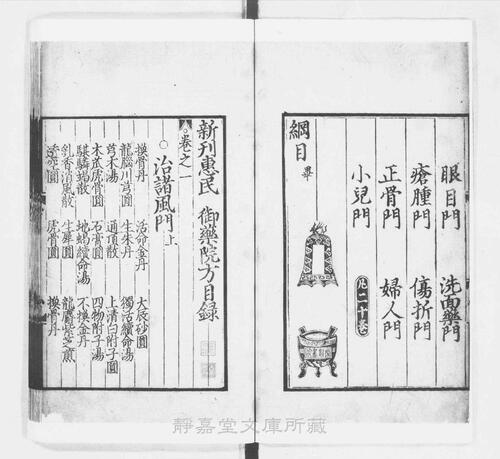 眼目門　洗面藥門
瘡腫門　傷折門
正骨門　婦人門
小兒門
凡二十卷
綱目 畢
新刊惠民御藥院方目錄
卷之一
○治諸風門上
換骨丹　活命金丹　大辰砂圓
龍腦川芎圓　生朱丹　獨活續命湯
芎朮湯　通頂散　上清白附子圓
木瓜虎骨圓　石膏圓　四物附子湯
騏驎竭散　續命湯　不換金丹
乳香消風散　生犀圓　龍麝紫芝煎
圓　虎骨圓　換骨丹
靜嘉堂文庫所藏